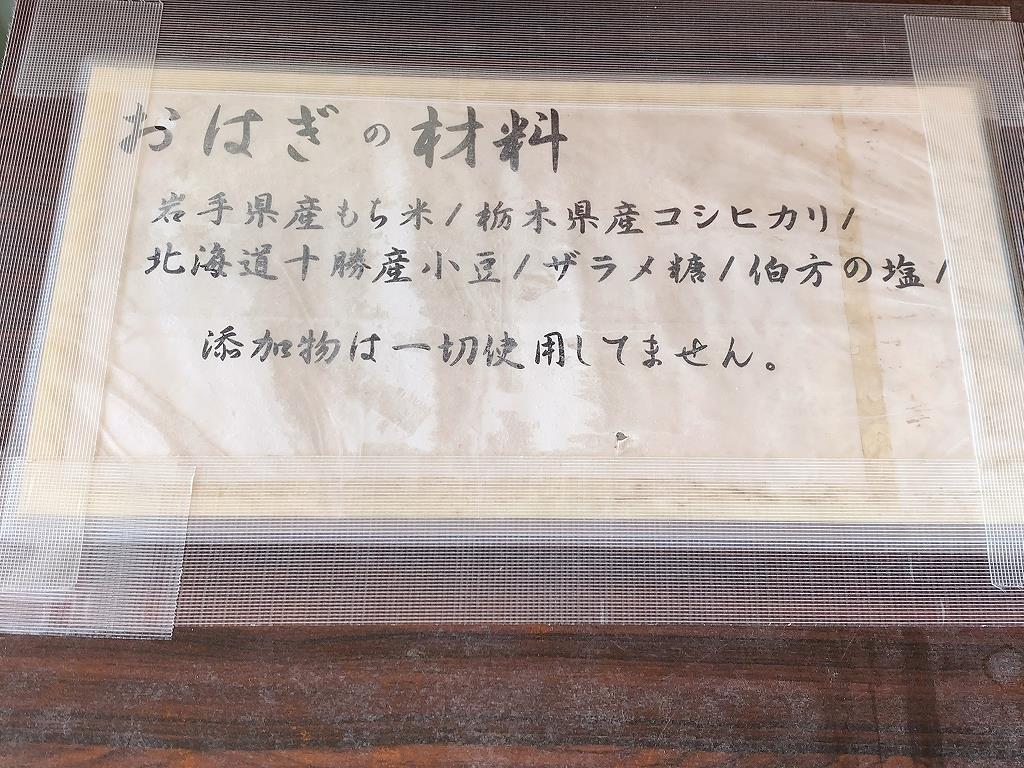 おはぎの材料
岩手県産もち米/栃木県産コシヒカリ/
北海道十勝産小豆/ザラメ糖/伯方の塩/
添加物は一切使用してません。